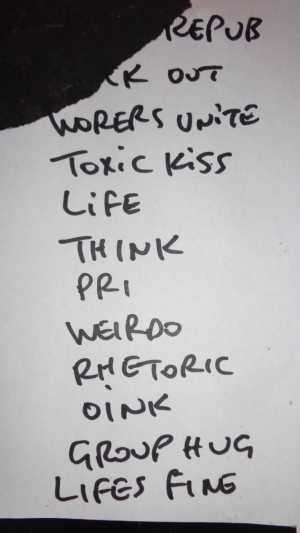 REPUB
CK OUT
WORERS UNITE
TOXIC KISS
LIFE
THINK
PRI
WEIRDO
RHETORIC
OINK
GROUP HUG
LIFES FINE